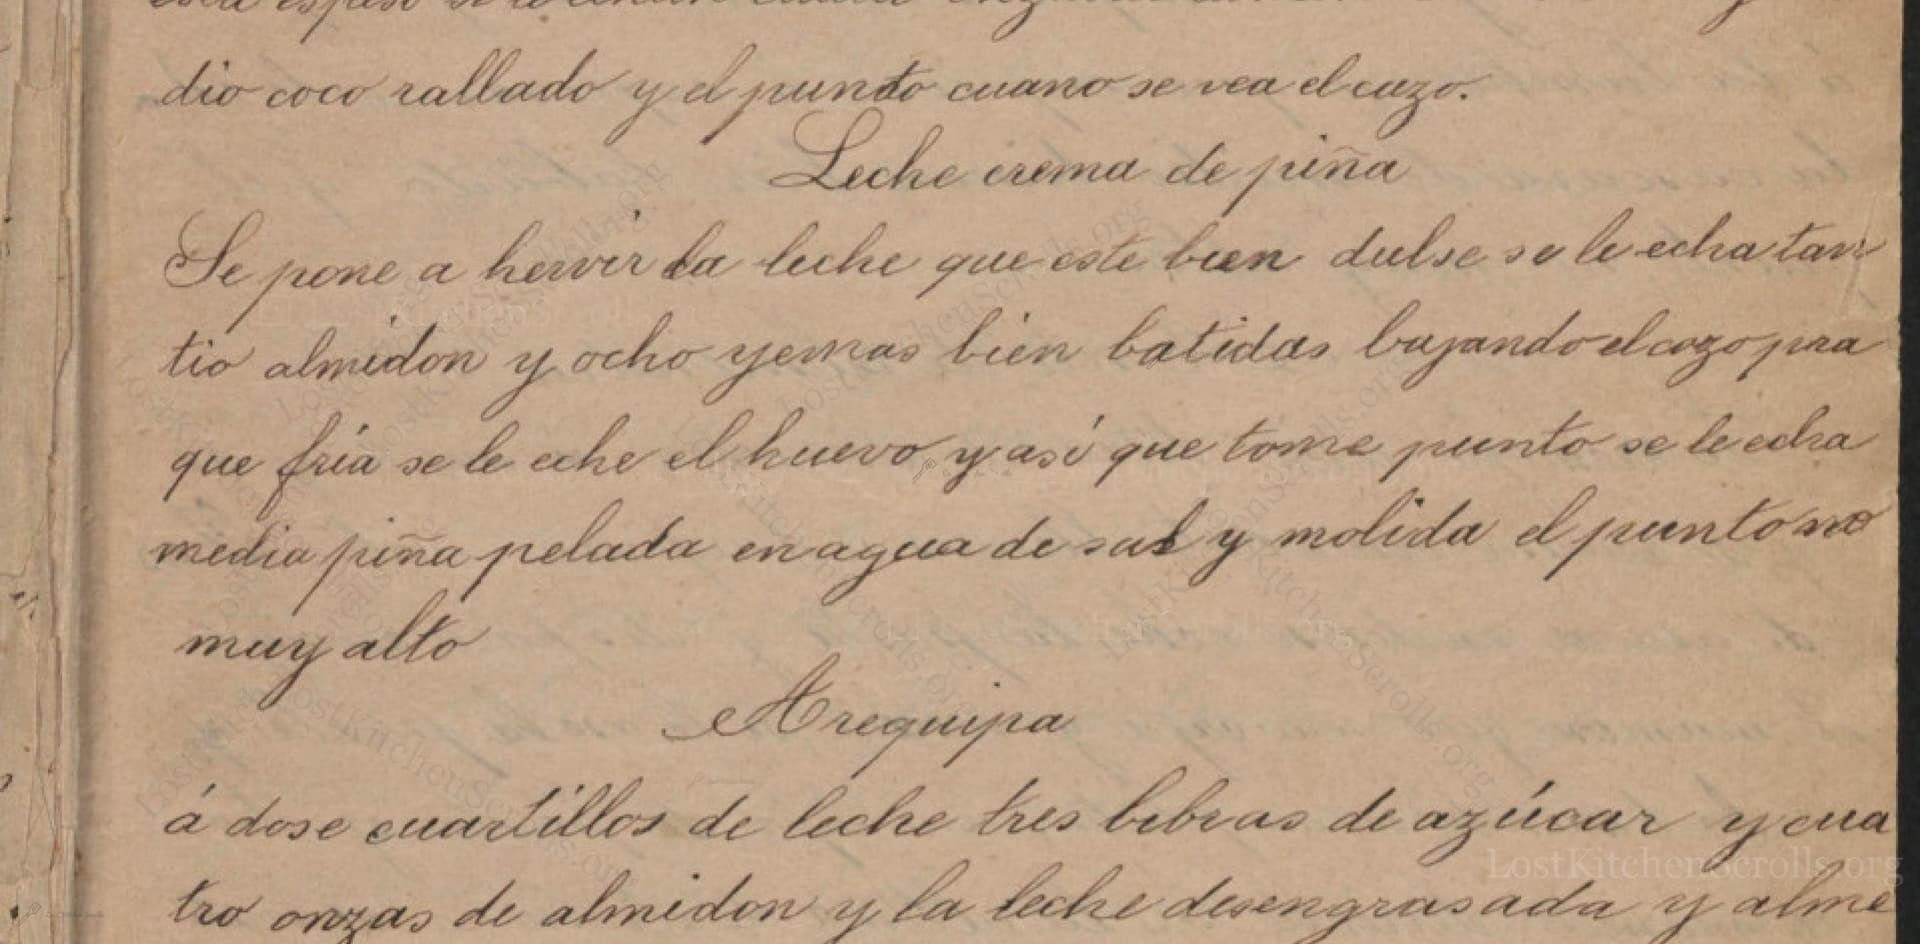 dio coco rallado y el punto cuano se vea el cazo.
Leche crema de piña
Se pone a hervir la leche que este bien dulse se le echa tan
tio almidon y ocho yemas bien batidas bajando el cazo pra
que fria se le eche el huevo, y así que tome punto se le echa
media piña pelada en agua de sal y molida el punto no
muy alto
Arequipa
á dose cuartillos de leche tres libras de azúcar y cua
tro onzas de almidon y la leche desengrasada y alme
LostKitchenScrolls.org